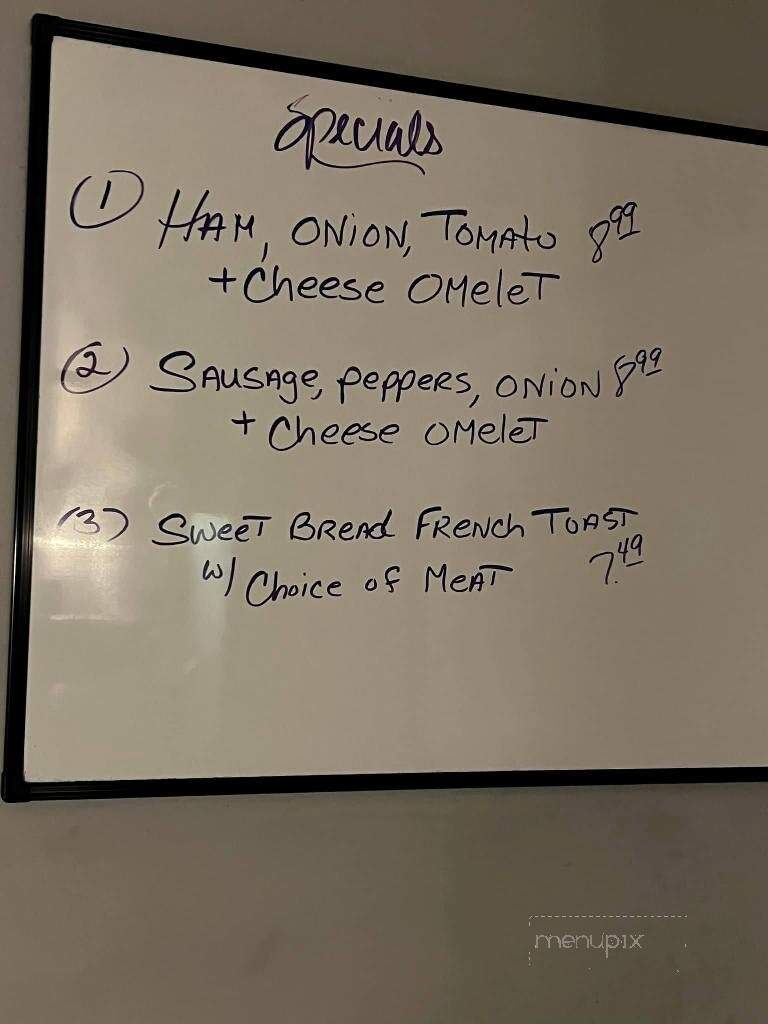 Specials
① HAM, ONION, TOMATO 8.99
+ Cheese OMeleT
② SAUSAge, PePPeRS, ONION 8.99
+ Cheese OMeleT
(3) SweeT BReAd FReNch TOAST
w/ Choice of MeAT 7.49
menupix